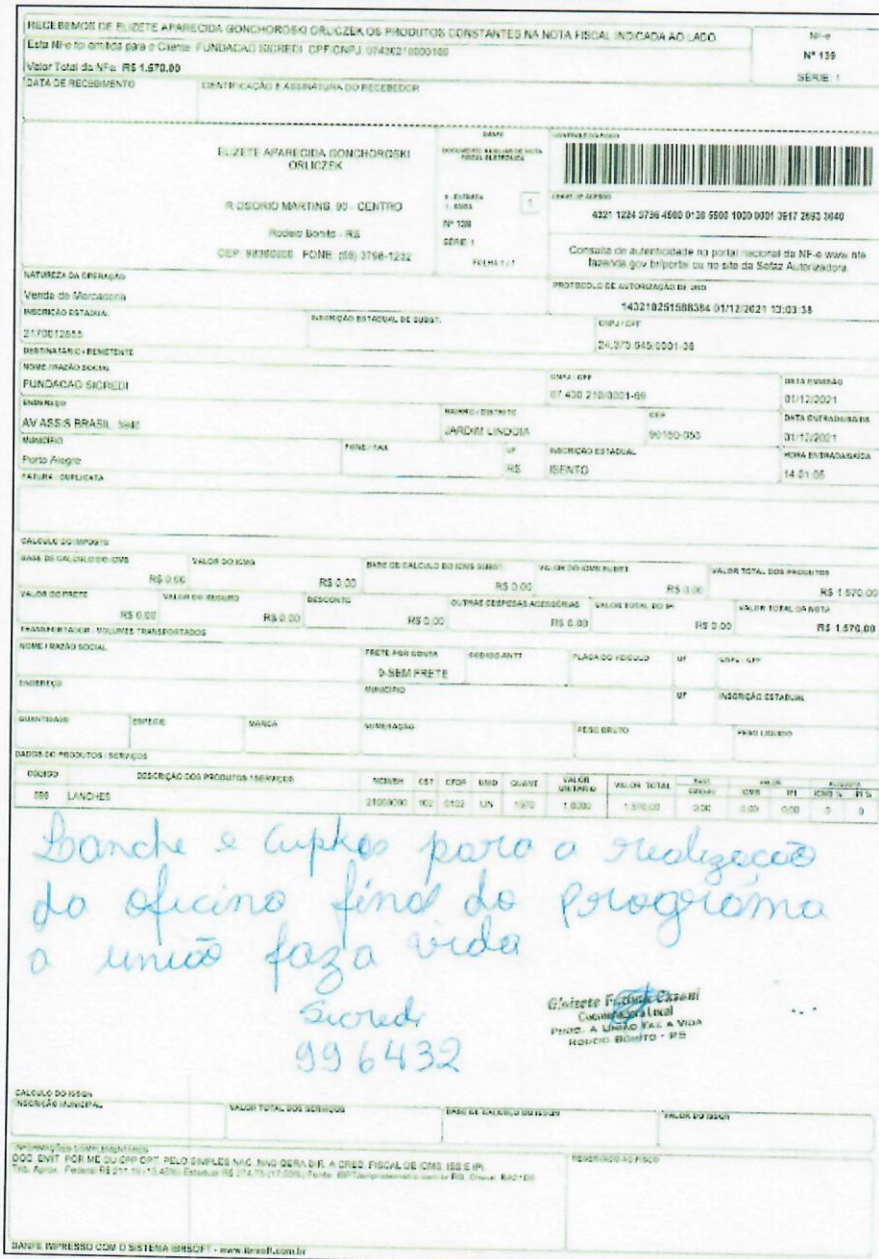 RECEBEMOS DE ELIZETE APARECIDA GONCHOROSKI ORLICZEK OS PRODUTOS CONSTANTES NA NOTA FISCAL INDICADA AO LADO
Esta NF-e foi emitida para o Cliente: FUNDACAO SICREDI CPF/CNPJ:
Valor Total da NFe: R$ 1.570,00
NF-e
Nº 139
SÉRIE: 1
DATA DE RECEBIMENTO
IDENTIFICAÇÃO E ASSINATURA DO RECEBEDOR
ELIZETE APARECIDA GONCHOROSKI
ORLICZEK
R OSORIO MARTINS, 90 - CENTRO
Rodeio Bonito - RS
CEP: 98360000 FONE: (55) 3798-1232
DANFE
DOCUMENTO AUXILIAR DE NOTA
FISCAL ELETRÔNICA
0 - ENTRADA
1 - SAIDA
1
Nº 139
SÉRIE: 1
FOLHA 1 / 1
CHAVE DE ACESSO
Consulta de autenticidade no portal nacional da NF-e www.nfe
fazenda.gov.br/portal ou no site da Sefaz Autorizadora.
NATUREZA DA OPERAÇÃO
Venda de Mercadoria
PROTOCOLO DE AUTORIZAÇÃO DE USO
143210251588384 01/12/2021 13:03:38
INSCRIÇÃO ESTADUAL
2170012855
INSCRIÇÃO ESTADUAL DE SUBST.
CNPJ / CPF
DESTINATÁRIO / REMETENTE
NOME / RAZÃO SOCIAL
FUNDACAO SICREDI
CNPJ / CPF
DATA EMISSÃO
01/12/2021
ENDEREÇO
AV ASSIS BRASIL, 3940
BAIRRO / DISTRITO
JARDIM LINDOIA
CEP
DATA ENTRADA/SAIDA
01/12/2021
MUNICÍPIO
Porto Alegre
FONE / FAX
UF
RS
INSCRIÇÃO ESTADUAL
ISENTO
HORA ENTRADA/SAÍDA
14:01:05
FATURA / DUPLICATA
CALCULO DO IMPOSTO
BASE DE CALCULO DO ICMS
R$ 0,00
VALOR DO ICMS
R$ 0,00
BASE DE CALCULO DO ICMS SUBST.
R$ 0,00
VALOR DO ICMS SUBST
R$ 0,00
VALOR TOTAL DOS PRODUTOS
R$ 1.570,00
VALOR DO FRETE
R$ 0,00
VALOR DO SEGURO
R$ 0,00
DESCONTO
R$ 0,00
OUTRAS DESPESAS ACESSÓRIAS
R$ 0,00
VALOR TOTAL DO IPI
R$ 0,00
VALOR TOTAL DA NOTA
R$ 1.570,00
TRANSPORTADOR / VOLUMES TRANSPORTADOS
NOME / RAZÃO SOCIAL
FRETE POR CONTA
9-SEM FRETE
CODIGO ANTT
PLACA DO VEICULO
UF
CNPJ / CPF
ENDEREÇO
MUNICÍPIO
UF
INSCRIÇÃO ESTADUAL
QUANTIDADE
ESPÉCIE
MARCA
NUMERAÇÃO
PESO BRUTO
PESO LIQUIDO
DADOS DO PRODUTOS / SERVIÇOS
CODIGO DESCRIÇÃO DOS PRODUTOS / SERVIÇOS NCM/SH CST CFOP UNID QUANT VALOR UNITÁRIO VALOR TOTAL BASE CALC VALOR ICMS IPI ALIQUOTA ICMS % IPI %
LANCHES 102 UN 1570 1,0000 1.570,00 0,00 0,00 0,00 0 0
Lanche e Cupkes para a realização
da oficina final do programa
a união faz a vida
Sicredi
996432
Coordenadora Local
PROG. A UNIÃO FAZ A VIDA
RODEIO BONITO - RS
CALCULO DO ISSQN
INSCRIÇÃO MUNICIPAL
VALOR TOTAL DOS SERVIÇOS
BASE DE CALCULO DO ISSQN
VALOR DO ISSQN
INFORMAÇÕES COMPLEMENTARES
DOC. EMIT. POR ME OU EPP OPT. PELO SIMPLES NAC. NAO GERA DIR. A CRED. FISCAL DE ICMS, ISS E IPI.
RESERVADO AO FISCO
DANFE IMPRESSO COM O SISTEMA IBRSOFT - www.ibrsoft.com.br